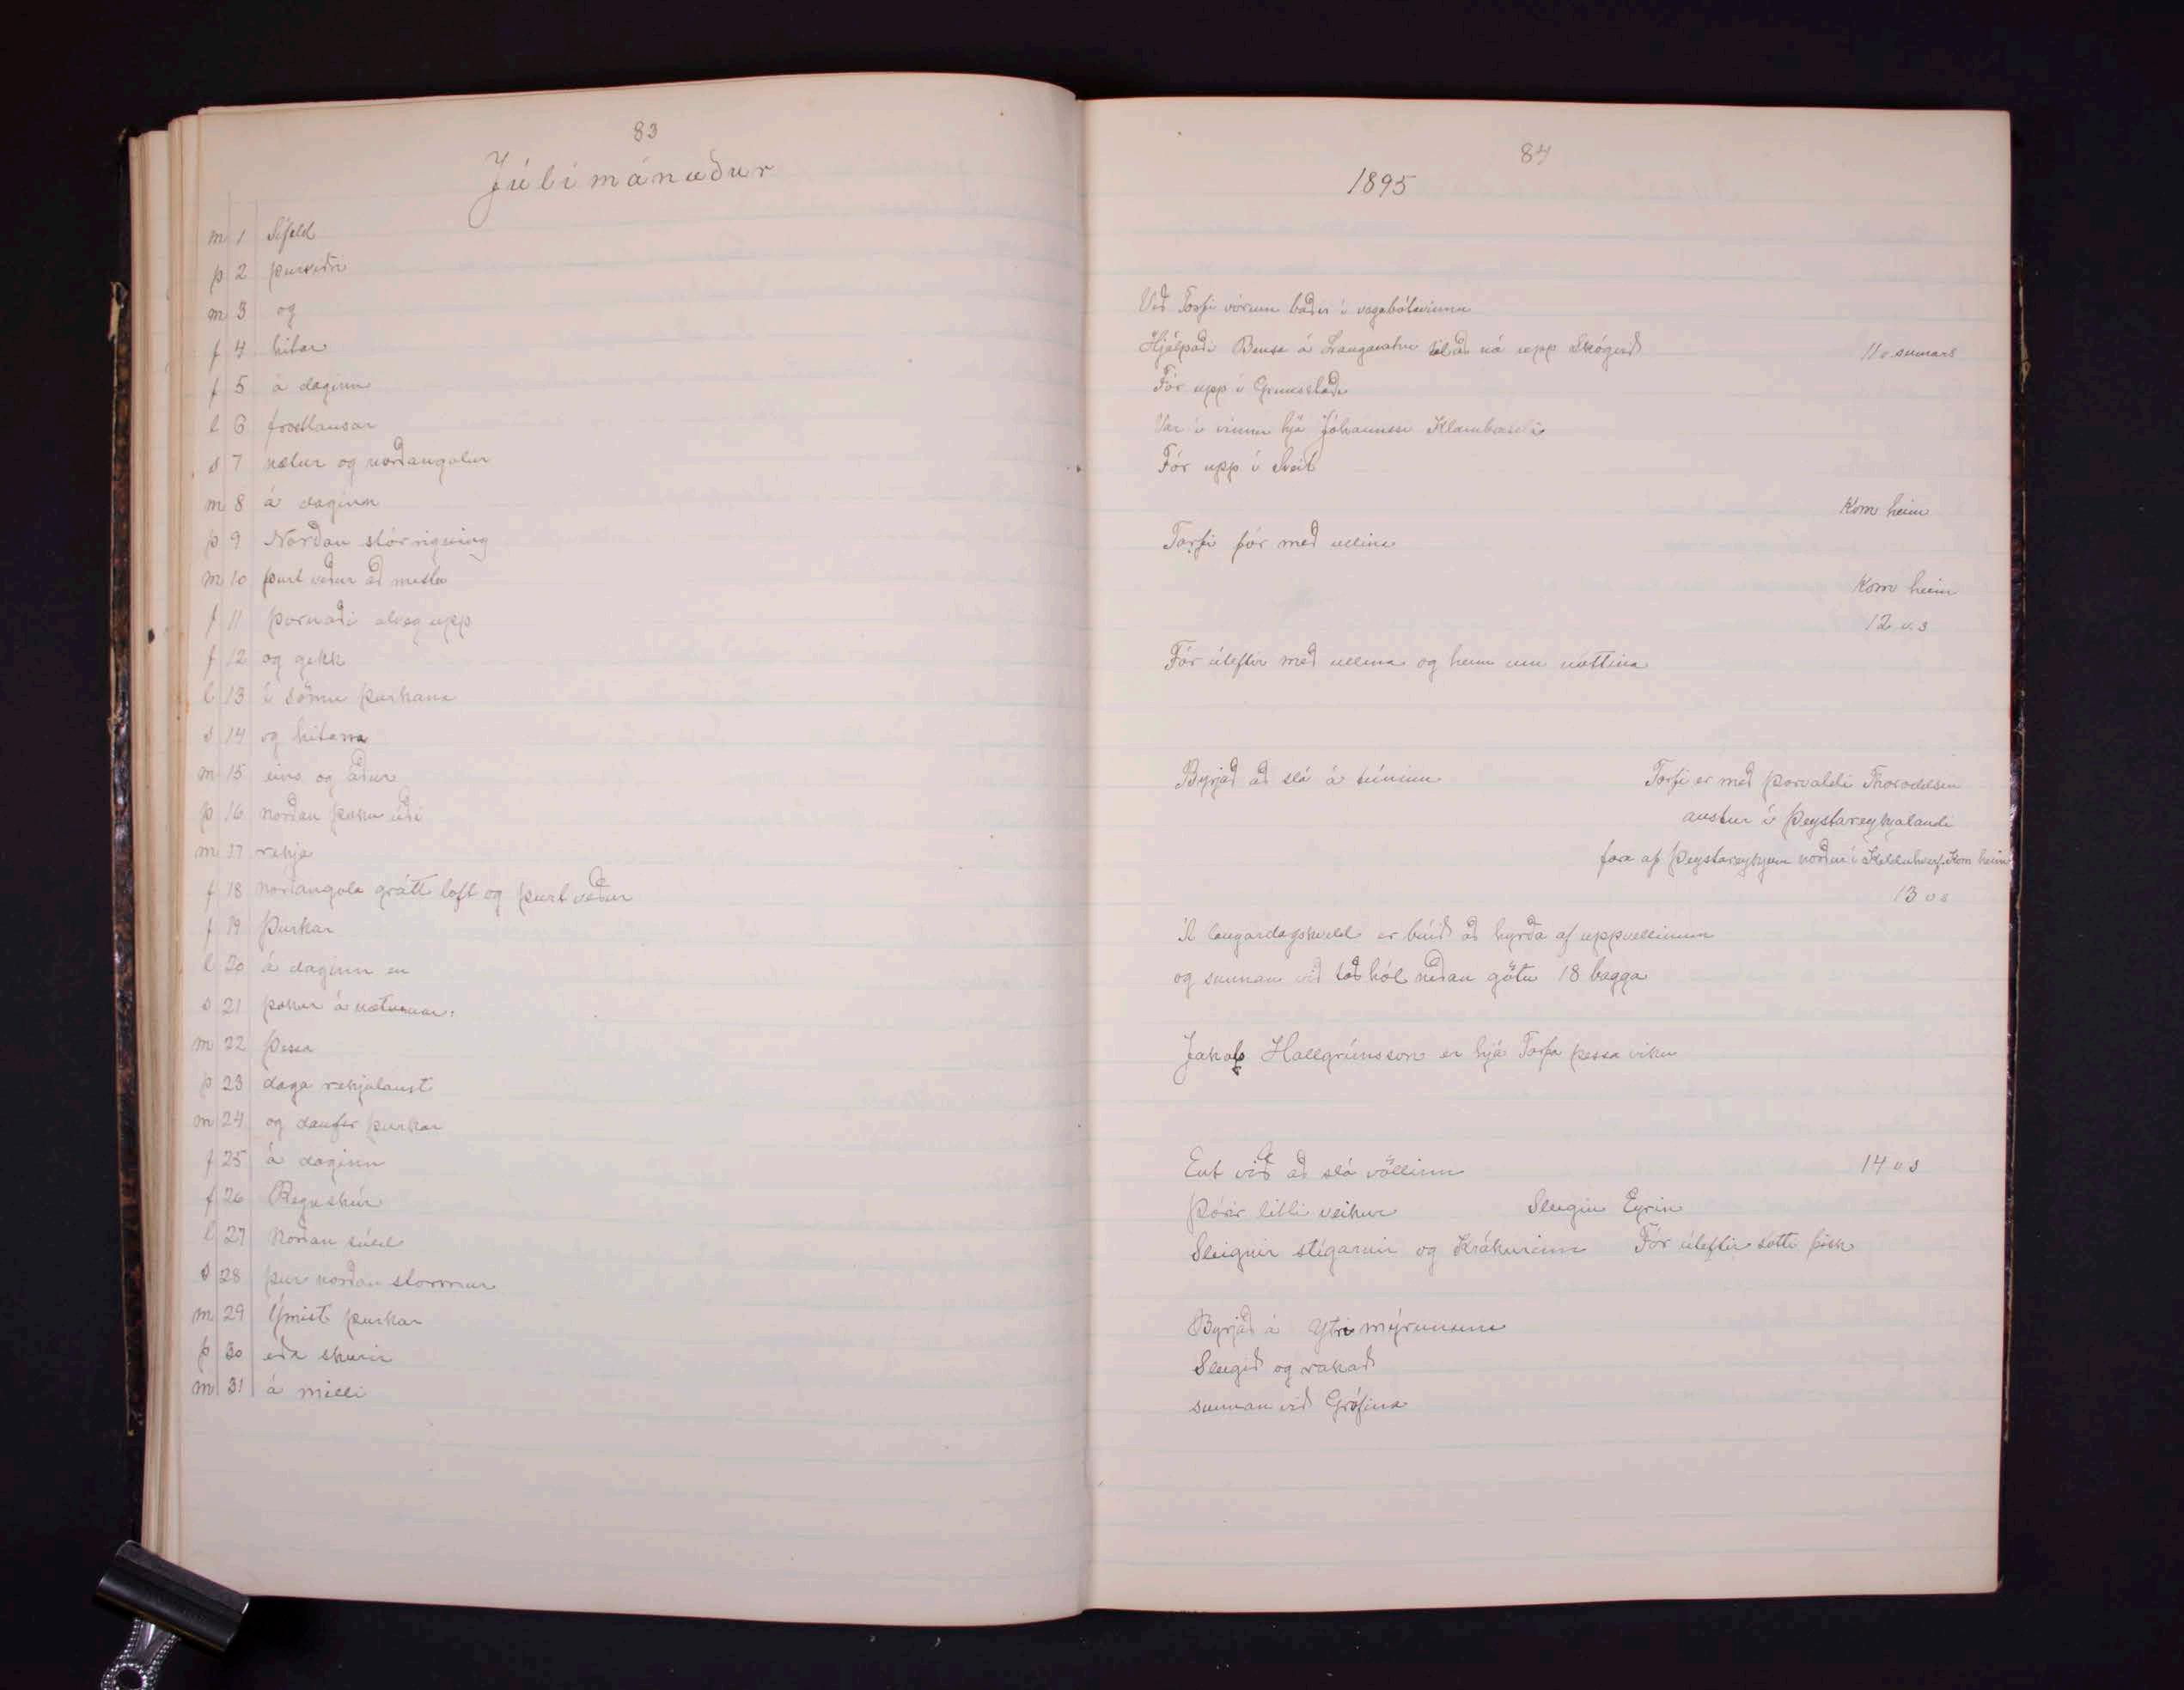 83
Júlímánuður
m 1 Sífeld
þ 2 þurviðri
m 3 og
f 4 hitar
f 5 á daginn
l 6 frostlausar
s 7 nætur og norðangolur
m 8 á daginn
þ 9 Norðan stórrigning
m 10 þurt veður að mestu
f 11 þornaði alveg upp
f 12 og gekk
l 13 í sömu þurkana
s 14 og hitana
m 15 eins og áður
þ 16 norðan þoku úði
m 17 rekja
f 18 norðangola grátt loft og þurt veður
f 19 Þurkar
l 20 á daginn en
s 21 þokur á nætunnar.
m 22 Þessa
þ 23 daga rekjulaust
m 24 og daufir þurkar
f 25 á daginn
f 26 Regnskúr
l 27 Norðan súld
s 28 þur norðan stormur
m 29 Ýmist þurkar
þ 30 eða skúrir
m 31 á milli
84
1895
Við Torfi vórum báðir í vegabótavinnu
Hjálpaði Bensa á Langavatni til að ná upp Skógvið 11 v sumars
Fór upp í Grímsstaði
Var í vinnu hjá Jóhannesi Klambraseli
Fór upp í Sveit
Kom heim
Torfi fór með ullina
Kom heim
12 v. s
Fór úteftir með ullina og heim um nóttina
Byrjað að slá á túninu Torfi er með Þorvaldi Thoroddsen
austur í Þeystareykjalandi
fara af Þeystareykjum norður í Kelduhverfi. Kom heim
13 v s
Á laugardagskveld er búið að hyrða af uppvellinum
og sunnan við tað hól neðan götu 18 bagga
Jakob Hallgrímsson er hjá Torfa þessa viku
Ent við að slá völlinn 14 v s
Þórir litli veikur Slegin Eyrin
Slegnir stígarnir og Krókurinn Fór úteftir sótti fisk
Byrjað á Ytri mýrunum
Slegið og rakað
sunnan við Grófina